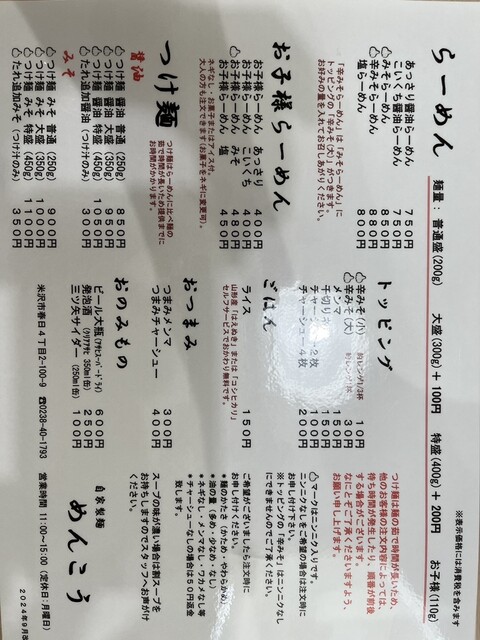 ※表示価格には消費税を含みます
らーめん 麺量: 普通盛(200g) 大盛(300g)+100円 特盛(400g)+200円 お子様(110g)
あっさり醤油らーめん 750円
こいくち醤油らーめん 750円
みそらーめん 850円
辛みそらーめん 880円
塩らーめん 800円
「辛みそらーめん」は「みそらーめん」に
トッピングの「辛みそ(大)」がつきます。
お好みの量を入れてお召しあがりください。
お子様らーめん
お子様らーめん あっさり 400円
お子様らーめん こいくち 400円
お子様らーめん みそ 480円
お子様らーめん 塩 450円
ネギなし・お菓子またはアイス付。
大人の方も注文できます(お菓子をネギに変更可)。
つけ麺
つけ麺はらーめんに比べ麺の
茹で時間が長いため提供までに
お時間がかかります。
醤油
つけ麺 醤油 普通 (250g) 850円
つけ麺 醤油 大盛 (350g) 950円
つけ麺 醤油 特盛 (450g)
たれ追加醤油 (つけ汁のみ)
みそ
つけ麺 みそ 普通 (250g) 900円
つけ麺 みそ 大盛 (350g)
つけ麺 みそ 特盛 (450g)
たれ追加みそ (つけ汁のみ) 350円
トッピング
辛みそ(小) 10円
辛みそ(大) 30円
メンマ
チャーシュー2枚
チャーシュー4枚 200円
ごはん
ライス 150円
山形産「はえぬき」または「コシヒカリ」
セルフサービスでおかわり無料です。
おつまみ
つまみメンマ 300円
つまみチャーシュー 400円
おのみもの
ビール大瓶(アサヒスーパードライ) 600円
発泡酒(クリアアサヒ 350ml缶) 250円
三ツ矢サイダー(250ml缶) 100円
つけ麺は麺の茹で時間が長いため、
他のお客様の注文内容によっては、
待ち時間が発生したり、順番が前後
する場合がございます。
なにとぞご了承くださいますよう、
お願い申し上げます。
マークはニンニク入りです。
ニンニクなしをご希望の場合は注文時に
お申し付け下さい。
※トッピングの「辛みそ」はニンニクなし
にできませんのでご了承ください。
ご希望がございましたら注文時に
お申し付けください。
*麺のかたさ(かため・やわらかめ)
*油の量(多め・少なめ・なし)
*ネギなし・メンマなし・ワカメなし等
*チャーシューなしの場合は80円返金
致します。
スープの味が濃い場合は割スープを
お持ちしますのでスタッフへお声がけ
ください。
自家製麺 めんこう
米沢市春日4丁目2-100-9 ☎0238-40-1793 営業時間 11:00〜15:00 (定休日:月曜日)
2024年9月